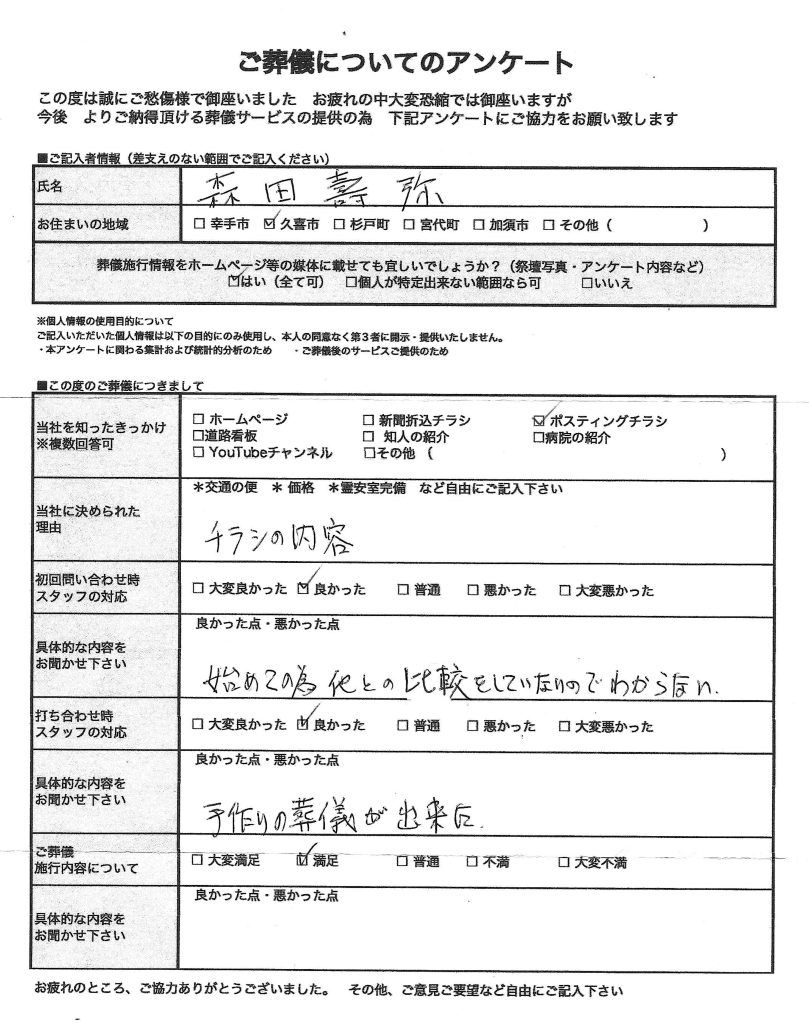 ご葬儀についてのアンケート
この度は誠にご愁傷様で御座いました　お疲れの中大変恐縮では御座いますが
今後　よりご納得頂ける葬儀サービスの提供の為　下記アンケートにご協力をお願い致します
■ご記入者情報（差支えのない範囲でご記入ください）
氏名 森田壽弥
お住まいの地域 □ 幸手市 ☑ 久喜市 □ 杉戸町 □ 宮代町 □ 加須市 □ その他（　　　）
葬儀施行情報をホームページ等の媒体に載せても宜しいでしょうか？（祭壇写真・アンケート内容など）
☑はい（全て可） □個人が特定出来ない範囲なら可 □いいえ
※個人情報の使用目的について
ご記入いただいた個人情報は以下の目的にのみ使用し、本人の同意なく第３者に開示・提供いたしません。
・本アンケートに関わる集計および統計的分析のため　・ご葬儀後のサービスご提供のため
■この度のご葬儀につきまして
当社を知ったきっかけ
※複数回答可
□ ホームページ □ 新聞折込チラシ ☑ ポスティングチラシ
□道路看板 □ 知人の紹介 □病院の紹介
□ YouTubeチャンネル □その他（　　　）
当社に決められた
理由
＊交通の便　＊ 価格　＊霊安室完備　など自由にご記入下さい
チラシの内容
初回問い合わせ時
スタッフの対応
□ 大変良かった ☑ 良かった □ 普通 □ 悪かった □ 大変悪かった
具体的な内容を
お聞かせ下さい
良かった点・悪かった点
始めての為他との比較をしていないのでわからない.
打ち合わせ時
スタッフの対応
□ 大変良かった ☑ 良かった □ 普通 □ 悪かった □ 大変悪かった
具体的な内容を
お聞かせ下さい
良かった点・悪かった点
手作りの葬儀が出来た.
ご葬儀
施行内容について
□ 大変満足 ☑ 満足 □ 普通 □ 不満 □ 大変不満
具体的な内容を
お聞かせ下さい
良かった点・悪かった点
お疲れのところ、ご協力ありがとうございました。　その他、ご意見ご要望など自由にご記入下さい